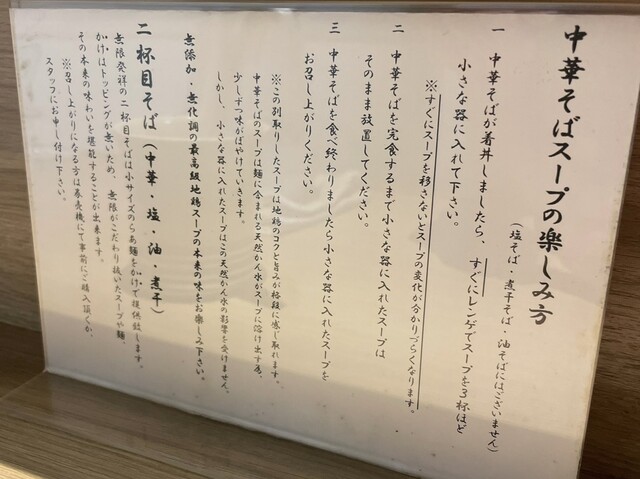 中華そばスープの楽しみ方
（塩そば・煮干そば・油そばにはございません）
一 中華そばが着丼しましたら、すぐにレンゲでスープを3杯ほど
小さな器に入れて下さい。
※すぐにスープを移さないとスープの変化が分かりづらくなります。
二 中華そばを完食するまで小さな器に入れたスープは
そのまま放置してください。
三 中華そばを食べ終わりましたら小さな器に入れたスープを
お召し上がりください。
※この別取りしたスープは地鶏のコクと旨みが格段に感じ取れます。
中華そばのスープは麺に含まれる天然かん水がスープに溶け出す為、
少しずつ味がぼやけていきます。
しかし、小さな器に入れたスープはこの天然かん水の影響を受けません。
無添加・無化調の最高級地鶏スープの本来の味をお楽しみ下さい。
二杯目そば（中華・塩・油・煮干）
無限発祥の二杯目そばは小サイズのらぁ麺をかけで提供致します。
かけはトッピングが無いため、無限がこだわり抜いたスープや麺、
その本来の味わいを堪能することが出来ます。
※召し上がりになる方は券売機にて事前にご購入頂くか、
スタッフにお申し付け下さい。